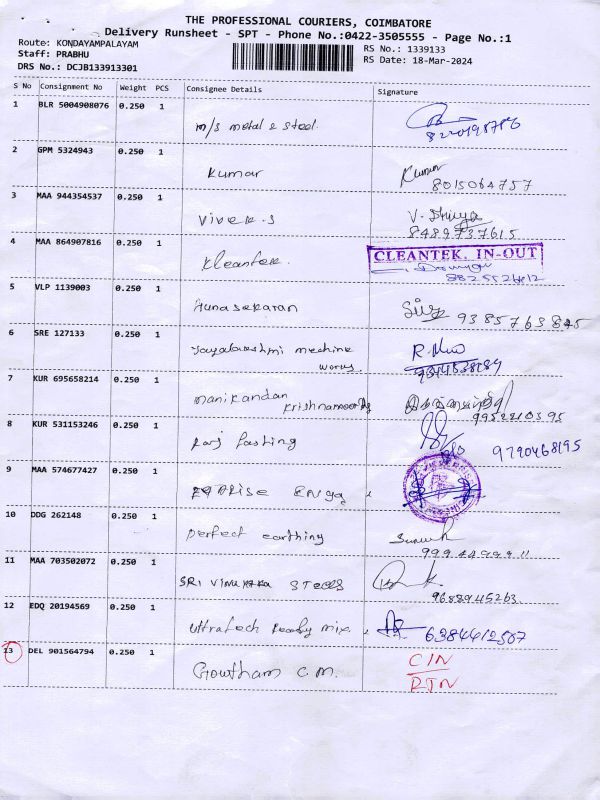 THE PROFESSIONAL COURIERS, COIMBATORE
Delivery Runsheet - SPT - Phone No.:0422-3505555 - Page No.:1
Route: KONDAYAMPALAYAM
Staff: PRABHU
DRS No.: DCJB133913301
RS No.: 1339133
RS Date: 18-Mar-2024
S No Consignment No Weight PCS Consignee Details Signature
1 BLR 5004908076 0.250 1
m/s metal & steel
2 GPM 5324943 0.250 1
Kumar Kumar
8015064757
3 MAA 944354537 0.250 1
Vivek.S V. Dhivya
8489737615
4 MAA 864907816 0.250 1
Kleantek. CLEANTEK. IN-OUT
5 VLP 1139003 0.250 1
9385763845
6 SRE 127133 0.250 1
Jayalakshmi mechine
works
7 KUR 695658214 0.250 1
manikandan
Krishnamoorthy
9952210395
8 KUR 531153246 0.250 1
Raj fasting 9790468195
9 MAA 574677427 0.250 1
10 DDG 262148 0.250 1
perfect earthing
11 MAA 703502072 0.250 1
SRI VINAYAKA STEELS
9688945263
12 EDQ 20194569 0.250 1
Ultratech Ready mix 6384412507
13 DEL 901564794 0.250 1
Gowtham C.M. CIN
RTN